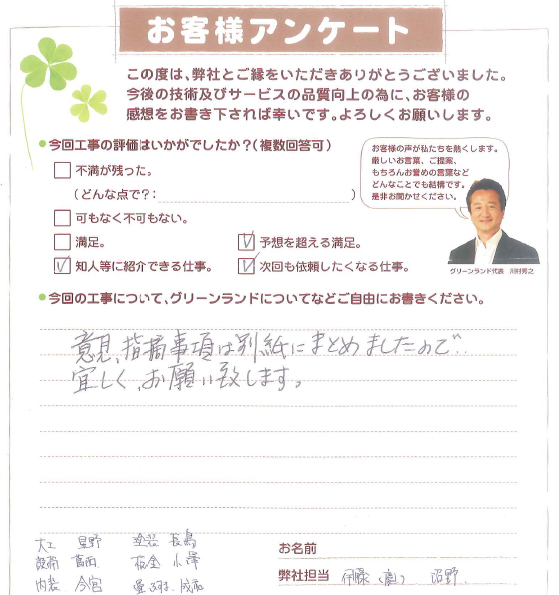 お客様アンケート
この度は、弊社とご縁をいただきありがとうございました。
今後の技術及びサービスの品質向上の為に、お客様の
感想をお書き下されば幸いです。よろしくお願いします。
●今回工事の評価はいかがでしたか?(複数回答可)
不満が残った。
(どんな点で?: )
可もなく不可もない。
満足。
予想を超える満足。
知人等に紹介できる仕事。
次回も依頼したくなる仕事。
お客様の声が私たちを熱くします。
厳しいお言葉、ご提案、
もちろんお誉めの言葉など
どんなことでも結構です。
是非お聞かせください。
グリーンランド代表 川村秀之
●今回の工事について、グリーンランドについてなどご自由にお書きください。
意見、指摘事項は別紙にまとめましたので..
宜しく、お願い致します。
大工 星野 塗装 長島
設備 葛西 板金 小澤
内装 今宮
お名前
弊社担当 伊藤 沼野